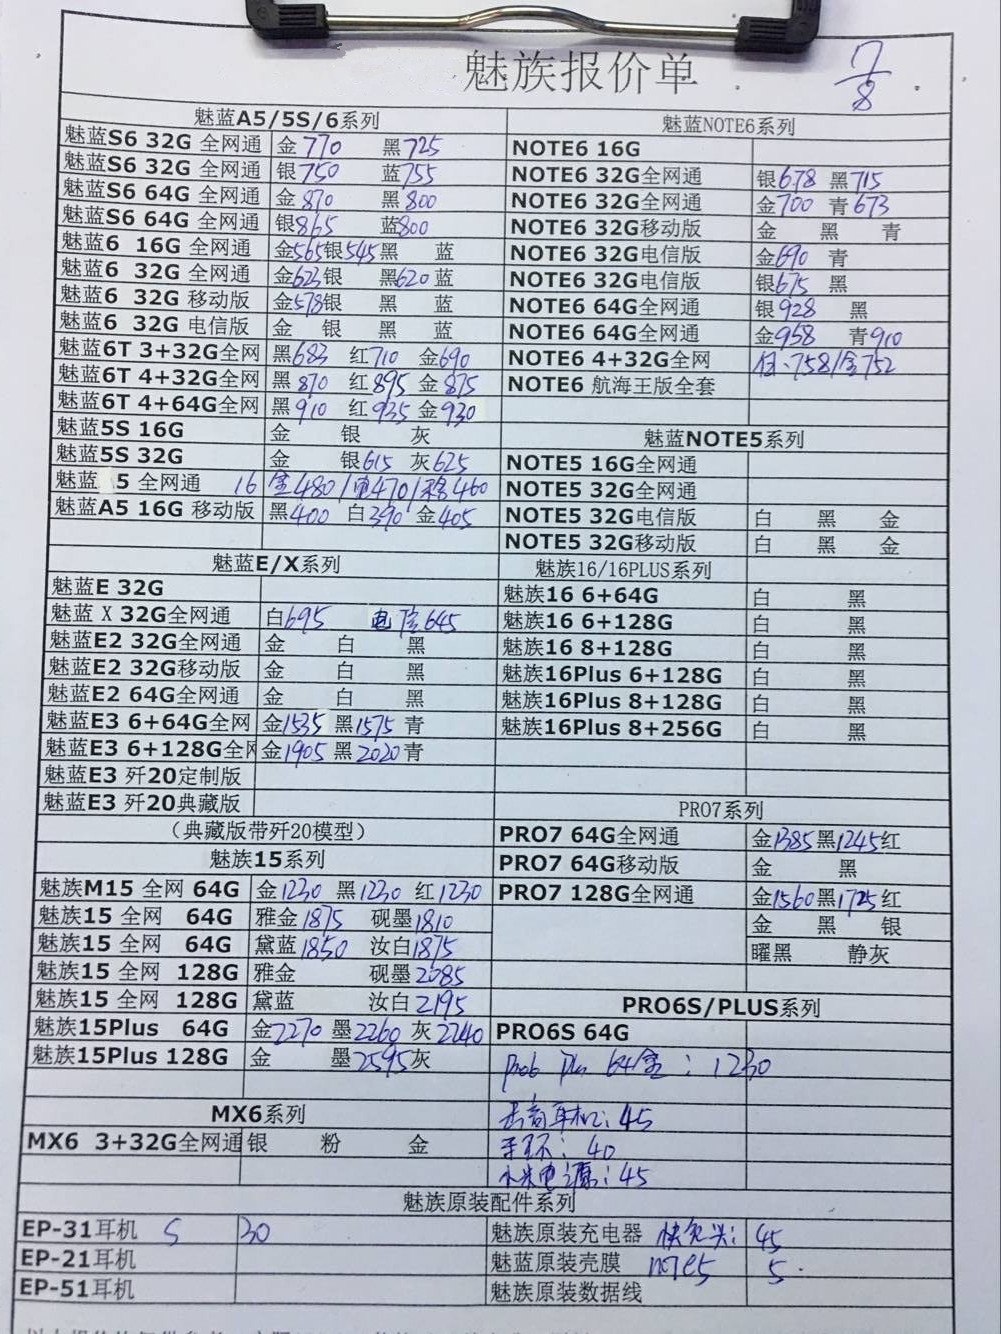 魅族报价单
7/8
魅蓝A5/5S/6系列
魅蓝S6 32G 全网通 金770 黑725
魅蓝S6 32G 全网通 银750 蓝755
魅蓝S6 64G 全网通 金870 黑800
魅蓝S6 64G 全网通 银865 蓝800
魅蓝6 16G 全网通 金565银545黑 蓝
魅蓝6 32G 全网通 金623银 黑620蓝
魅蓝6 32G 移动版 金578银 黑 蓝
魅蓝6 32G 电信版 金 银 黑 蓝
魅蓝6T 3+32G全网 黑683 红710 金690
魅蓝6T 4+32G全网 黑870 红895 金875
魅蓝6T 4+64G全网 黑910 红935 金930
魅蓝5S 16G 金 银 灰
魅蓝5S 32G 金 银615 灰625
魅蓝 5 全网通 16 金480/电470/移460
魅蓝A5 16G 移动版 黑400 白390 金405
魅蓝E/X系列
魅蓝E 32G
魅蓝 X 32G全网通 白695 电信645
魅蓝E2 32G全网通 金 白 黑
魅蓝E2 32G移动版 金 白 黑
魅蓝E2 64G全网通 金 白 黑
魅蓝E3 6+64G全网 金1535 黑1575 青
魅蓝E3 6+128G全网 金1905 黑2020青
魅蓝E3 歼20定制版
魅蓝E3 歼20典藏版
（典藏版带歼20模型）
魅族15系列
魅族M15 全网 64G 金1230 黑1230 红1230
魅族15 全网 64G 雅金1875 砚墨1810
魅族15 全网 64G 黛蓝1850 汝白1875
魅族15 全网 128G 雅金 砚墨2085
魅族15 全网 128G 黛蓝 汝白2195
魅族15Plus 64G 金2270 墨2260 灰2240
魅族15Plus 128G 金 墨2595灰
MX6系列
MX6 3+32G全网通 银 粉 金
魅蓝NOTE6系列
NOTE6 16G
NOTE6 32G全网通 银678 黑715
NOTE6 32G全网通 金700 青673
NOTE6 32G移动版 金 黑 青
NOTE6 32G电信版 金690 青
NOTE6 32G电信版 银675 黑
NOTE6 64G全网通 银928 黑
NOTE6 64G全网通 金958 青910
NOTE6 4+32G全网 758/金752
NOTE6 航海王版全套
魅蓝NOTE5系列
NOTE5 16G全网通
NOTE5 32G全网通
NOTE5 32G电信版 白 黑 金
NOTE5 32G移动版 白 黑 金
魅族16/16PLUS系列
魅族16 6+64G 白 黑
魅族16 6+128G 白 黑
魅族16 8+128G 白 黑
魅族16Plus 6+128G 白 黑
魅族16Plus 8+128G 白 黑
魅族16Plus 8+256G 白 黑
PRO7系列
PRO7 64G全网通 金1385黑1245红
PRO7 64G移动版 金 黑
PRO7 128G全网通 金1560黑1725红
金 黑 银
曜黑 静灰
PRO6S/PLUS系列
PRO6S 64G
Pro6 Plus 64金：1230
耳机：45
手环：40
小米电源：45
魅族原装配件系列
EP-31耳机 S 30
EP-21耳机
EP-51耳机
魅族原装充电器 快充头：45
魅蓝原装壳膜 note5 5.
魅族原装数据线